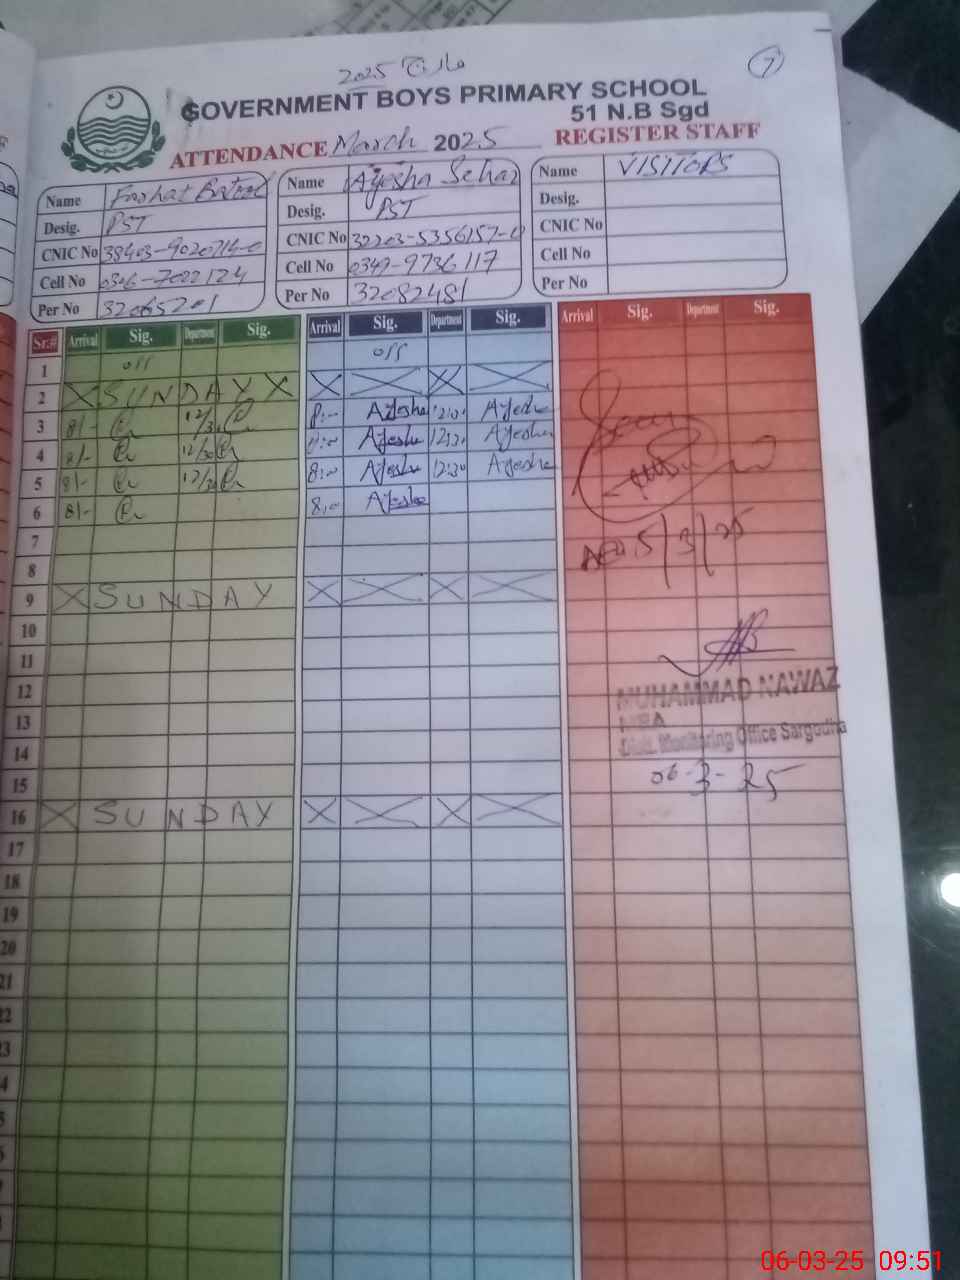 مارچ 2025
7
GOVERNMENT BOYS PRIMARY SCHOOL
51 N.B Sgd
ATTENDANCE March 2025 REGISTER STAFF
Name Farhat Batool
Desig. PST
CNIC No 38403-9020714-0
Cell No 0306-7022124
Per No 32065201
Name Ayesha Sehar
Desig. PST
CNIC No 32203-5356157-0
Cell No 0347-9736117
Per No 32082481
Name VISITORS
Desig.
CNIC No
Cell No
Per No
Sr.# Arrival Sig. Department Sig. Arrival Sig. Department Sig. Arrival Sig. Department Sig.
1 off off
2 X SUNDAY X X X X X
3 8/- 12/30 8:- Ayesha 12:30 Ayesha
4 8/- 12/30 8:00 Ayesha 12:30 Ayesha
5 8/- 12/30 8:00 Ayesha 12:30 Ayesha
6 8/- 8:00 Ayesha
7
8
9 X SUNDAY X X X X
10
11
12
13
14
15
16 X SUNDAY X X X X
17
18
19
20
21
22
23
5/3/25
MUHAMMAD NAWAZ
MEA
Distt. Monitoring Office Sargodha
06-3-25
06-03-25 09:51